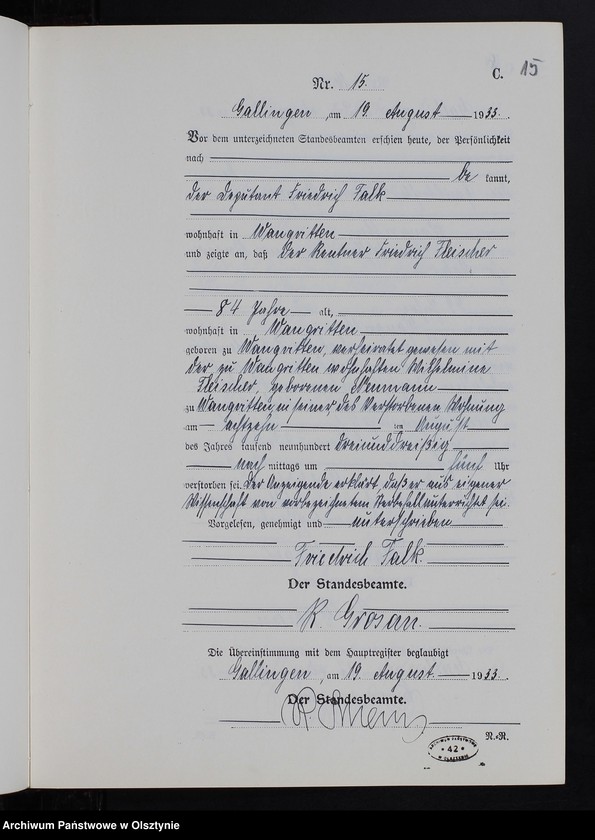 C. 15
Nr. 15.
Gallingen, am 19. August 1933.
Vor dem unterzeichneten Standesbeamten erschien heute, der Persönlichkeit
nach
be kannt,
der Deputant Friedrich Falk
wohnhaft in Wangritten
und zeigte an, daß der Rentner Friedrich Fleischer
84 Jahre alt,
wohnhaft in Wangritten
geboren zu Wangritten, verheiratet gewesen mit
der zu Wangritten wohnhaften Wilhelmine
Fleischer, geborenen Neumann
zu Wangritten, in seiner des Verstorbenen Wohnung
am achtzehn ten August
des Jahres tausend neunhundert dreiunddreißig
nach mittags um fünf Uhr
verstorben sei. Der Anzeigende erklärt, daß er aus eigener
Wissenschaft von vorbezeichnetem Sterbefall unterrichtet sei.
Vorgelesen, genehmigt und unterschrieben
Friedrich Falk.
Der Standesbeamte.
R. Grosan.
Die Übereinstimmung mit dem Hauptregister beglaubigt
Gallingen, am 19. August 1933.
Der Standesbeamte.
R.-R.
ARCHIWUM PAŃSTWOWE
* 42 *
W OLSZTYNIE
Archiwum Państwowe w Olsztynie